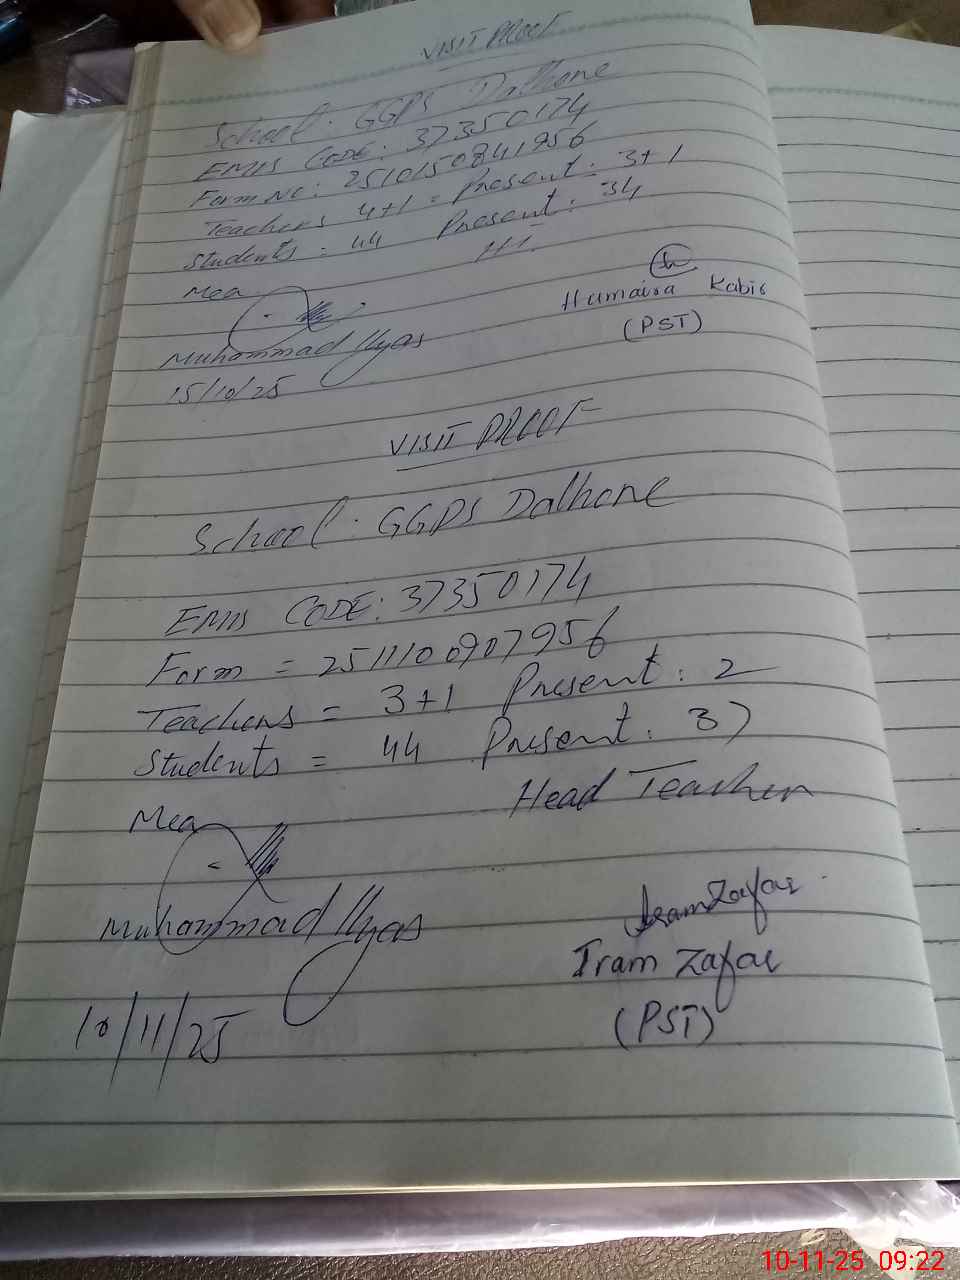 VISIT PROOF
School: GGPS Dalhone
EMIS CODE: 37350174
Form No: 2510150841956
Teachers 4+1 = Present: 3+1
Students = 44 Present: 34
H.T.
Mea
Humaira Kabir
(PST)
Muhammad Ilyas
15/10/25
VISIT PROOF
School: GGPS Dalhone
EMIS CODE: 37350174
Form = 2511100907956
Teachers = 3+1 Present: 2
Students = 44 Present: 37
Head Teacher
Mea
Iram Zafar
Muhammad Ilyas
Iram Zafar
(PST)
10/11/25
10-11-25 09:22